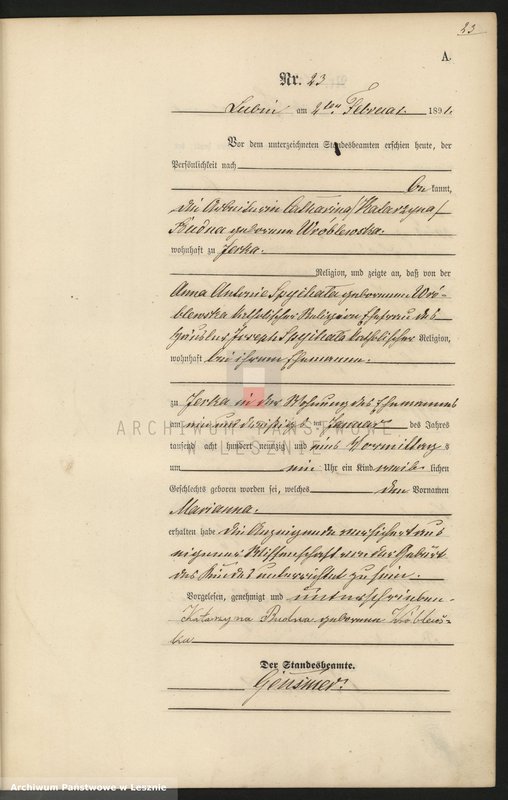 23
A.
Nr. 23
Lubin am 2ten Februar 1891.
Vor dem unterzeichneten Standesbeamten erschien heute, der
Persönlichkeit nach
bekannt,
die Arbeiterin Catharina /Katarzyna/
Budna geborene Wróblewska.
wohnhaft zu Jerka.
Religion, und zeigte an, daß von der
Anna Antonie geborenen Wró-
blewska katholischer Religion Ehefrau des
Häuslers Joseph katholischer Religion,
wohnhaft bei ihrem Ehemanne.
zu Jerka in der Wohnung des Ehemannes
am ein und dreißigsten Januar des Jahres
tausend acht hundert neunzig und eins Vormittags
um ein Uhr ein Kind weiblichen
Geschlechts geboren worden sei, welches den Vornamen
Marianna.
erhalten habe die Anzeigende versichert aus
eigener Wissenschaft von der Geburt
des Kindes unterrichtet zu sein.
Vorgelesen, genehmigt und unterschrieben.
Katarzyna Budna geborene Wróblews-
ka
Der Standesbeamte.
Gensmer.
ARCHIWUM PAŃSTWOWE
W LESZNIE
Archiwum Państwowe w Lesznie